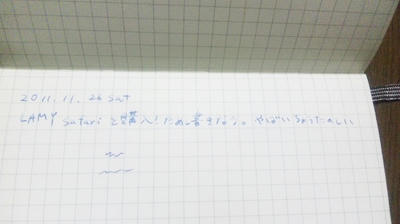 2011.11.26 Sat
LAMY safari を購入!ため書きなう。やばいちょうたのしい